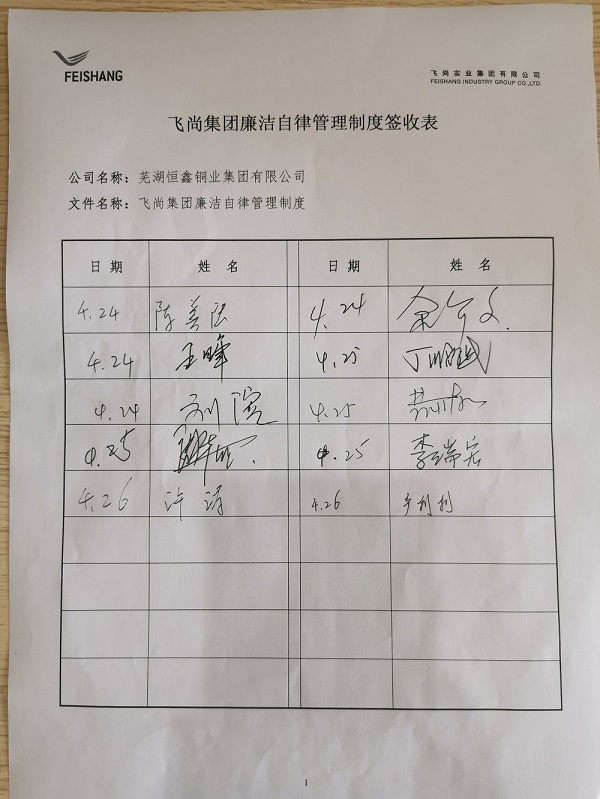 FEISHANG
飞尚实业集团有限公司
FEISHANG INDUSTRY GROUP CO.,LTD.
飞尚集团廉洁自律管理制度签收表
公司名称：芜湖恒鑫铜业集团有限公司
文件名称：飞尚集团廉洁自律管理制度
日期 姓名 日期 姓名
4.24 陈善法 4.24
4.24 王峰 4.25
4.24 刘滨 4.25
4.25 4.25 李瑞宏
4.26 许涛 4.26
1